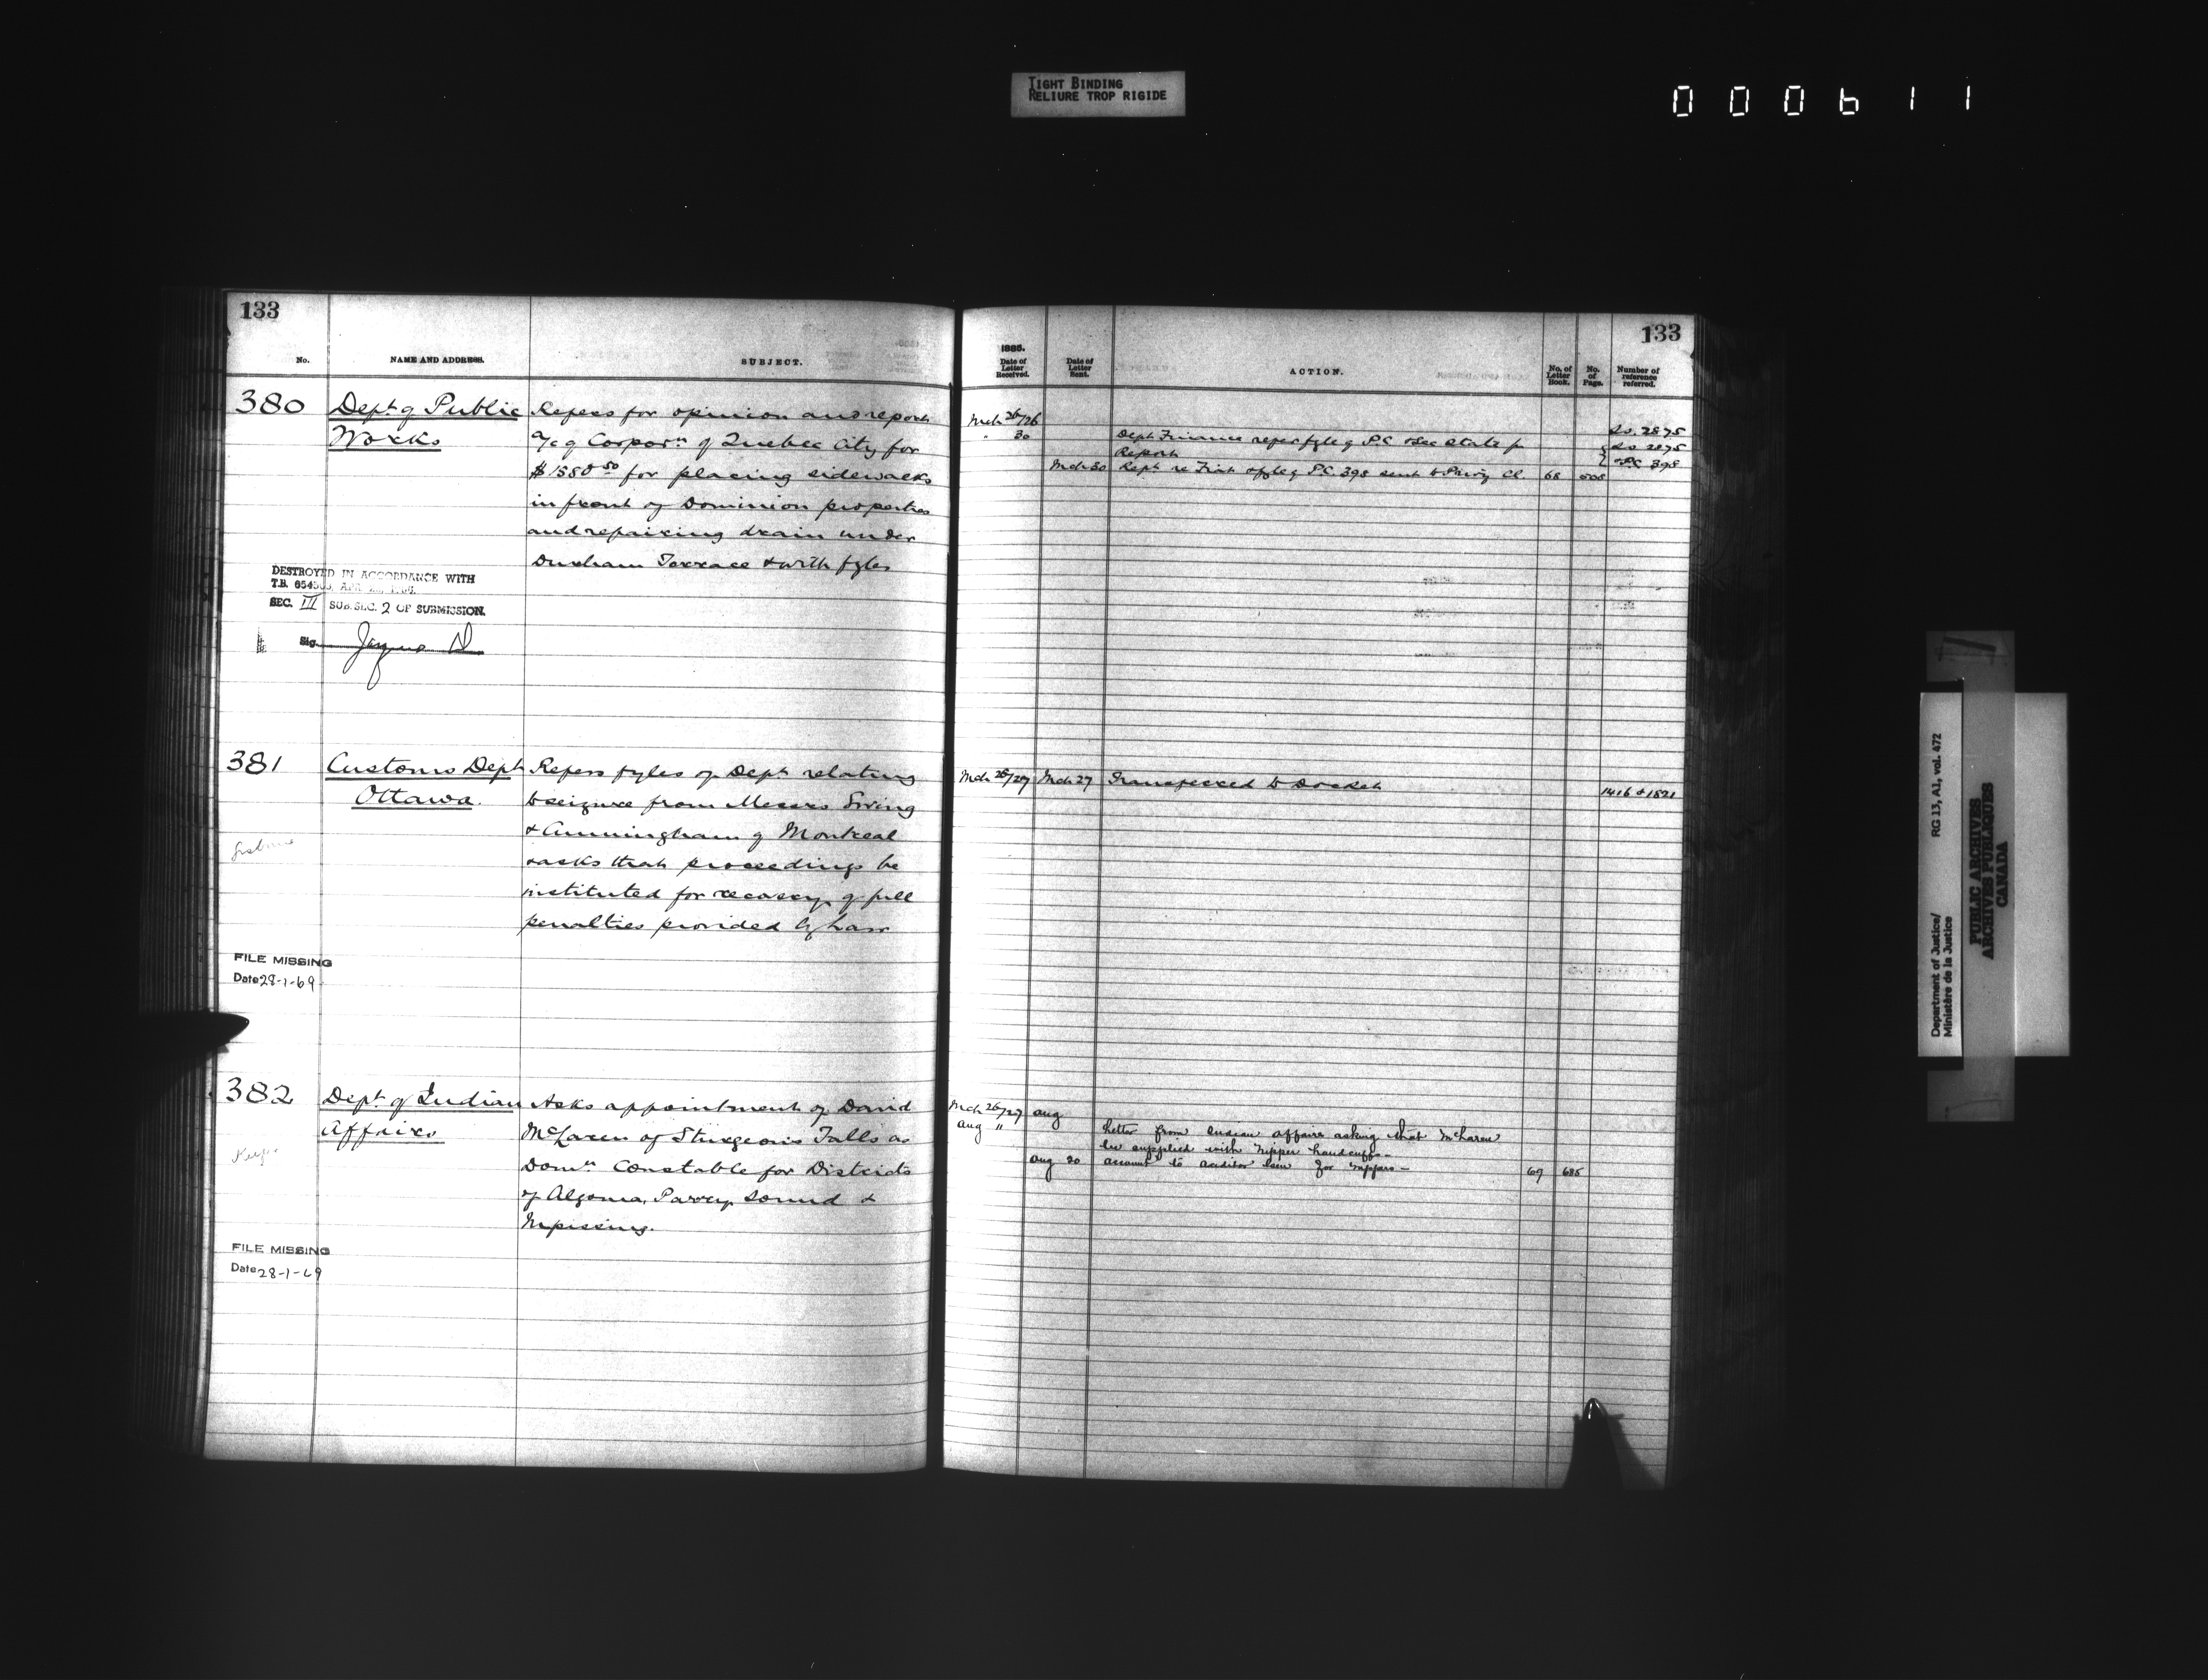 TIGHT BINDING
RELIURE TROP RIGIDE
000611
133
No.
NAME AND ADDRESS.
SUBJECT.
380
Dept. of Public
Works
Refers for opinion and report
a/c of Corporn of Quebec City for
$1880 50 for placing sidewalks
in front of Dominion properties
and repairing drain under
Durham Terrace & with fyles
DESTROYED IN ACCORDANCE WITH
T.B.
SEC. III SUB. SEC. 2 OF SUBMISSION.
Sig.
381
Customs Dept
Ottawa.
Refers fyles of Dept relating
to seizure from Messrs
& Cunningham of Montreal
& asks that proceedings be
instituted for recovery of full
penalties provided by law
FILE MISSING
Date 28-1-69
382
Dept. of Indian
Affairs
Asks appointment of David
McLaren of Sturgeons Falls as
Domn Constable for Districts
of Algoma, Parry Sound &
Nipissing.
FILE MISSING
Date 28-1-69
133
1885.
Date of Letter Received.
Date of Letter Sent.
ACTION.
No. of Letter Book.
No. of Page.
Number of reference referred.
Mch 26/26
2875
" 30
Dept Finance refers fyle of P.C. & Sec State for
2875
Report
P.C. 398
Mch 30 Rept re P.C. 398 sent to Privy Cl. 68
Mch 26/27 Mch 27 Transferred to Docket
1416 & 1821
Mch 26/27 Aug
Aug "
Letter from Indian Affairs asking that McLaren
be supplied with Nipper handcuffs -
Aug 20 account to auditor Genl for nippers - 69 685
Department of Justice/
Ministère de la Justice
RG 13, A1, vol. 472
PUBLIC ARCHIVES
ARCHIVES PUBLIQUES
CANADA